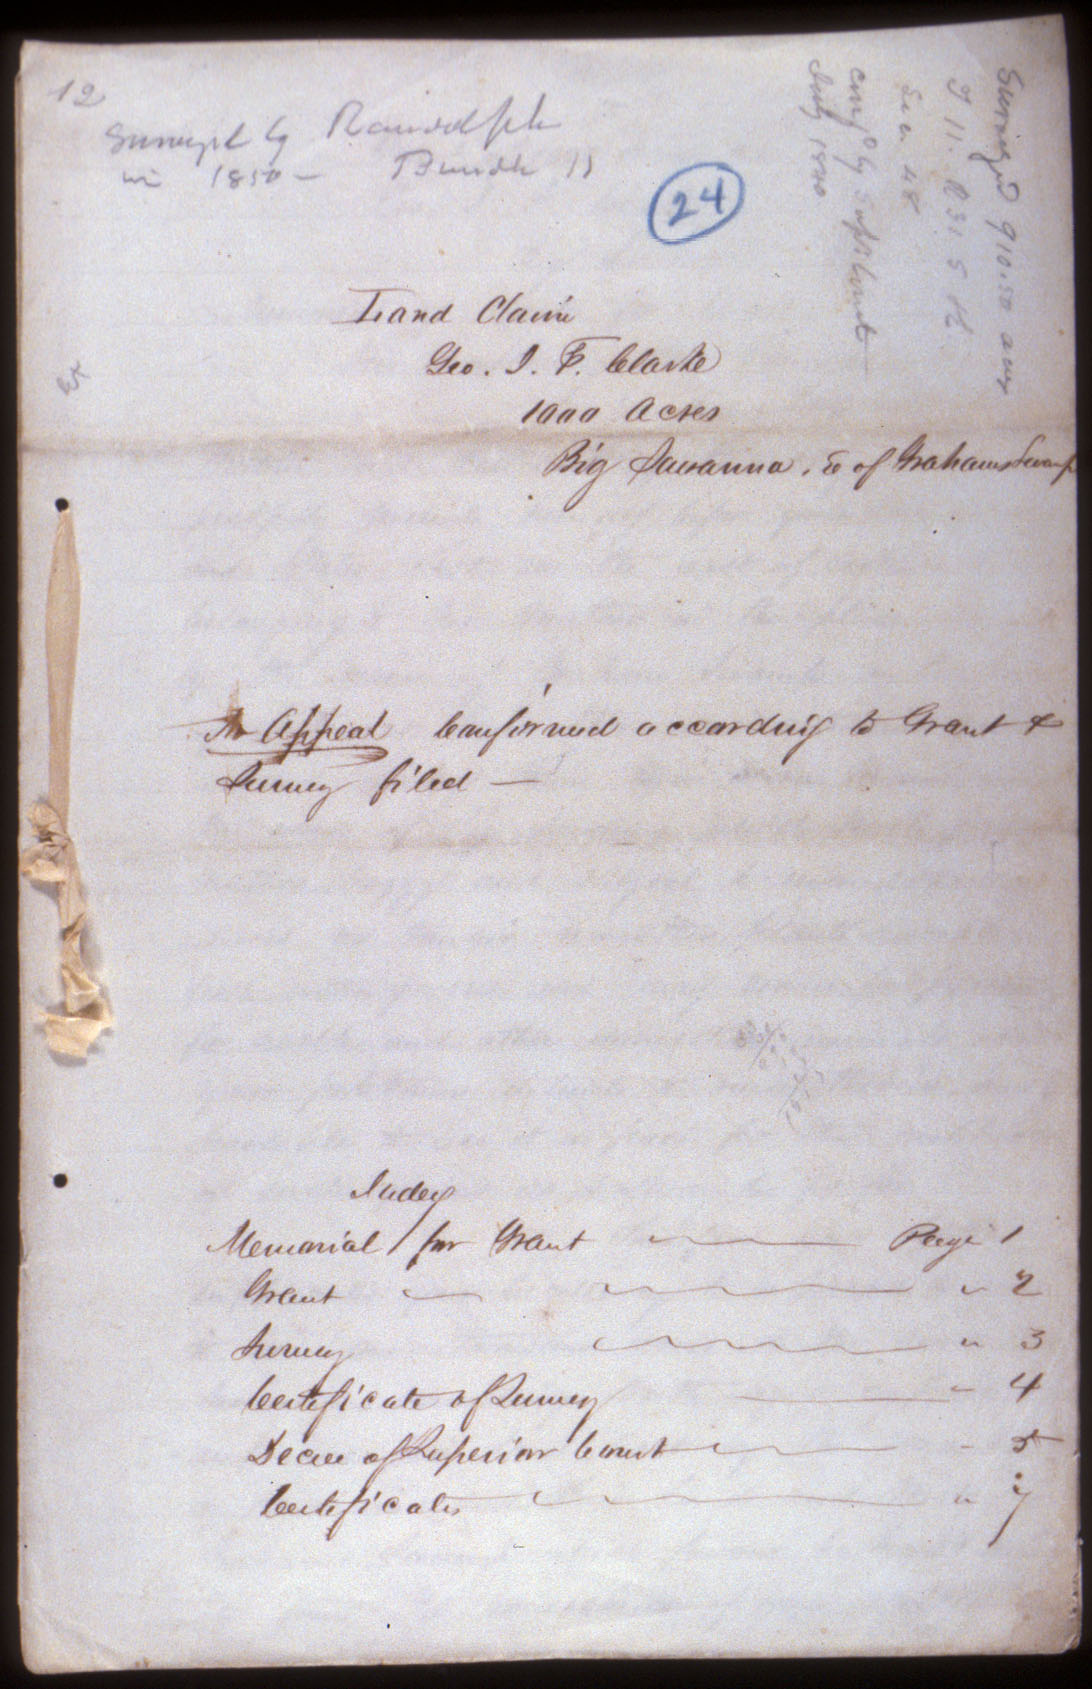 12
Surveyed by Randolph
in 1850 — Bundle 11
24
Surveyed 910.50 acres
T 11. R 31 S &E.
Sec. 48
July 1840
Land Claim
Geo. I. F. Clarke
1000 Acres
Big Savanna, E of Grahams Swamp
No Appeal Confirmed according to Grant &
Survey filed —
Index
Memorial for Grant Page 1
Grant " 2
Survey " 3
Certificate of Survey " 4
Decree of Superior Court " 5
Certificates " 7